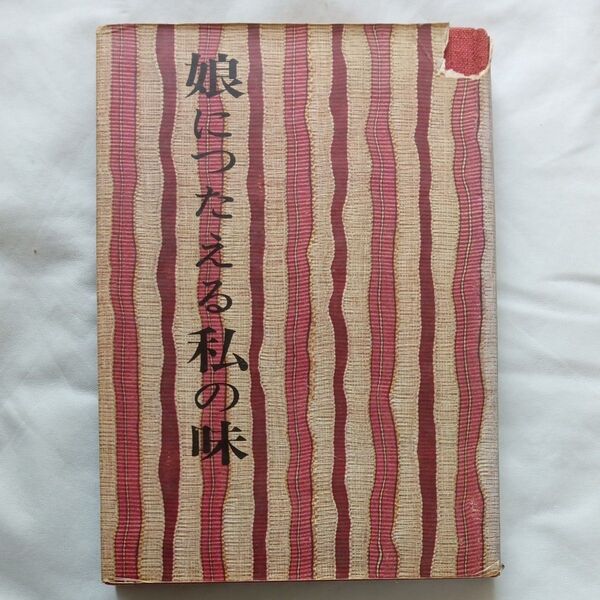 娘につたえる私の味